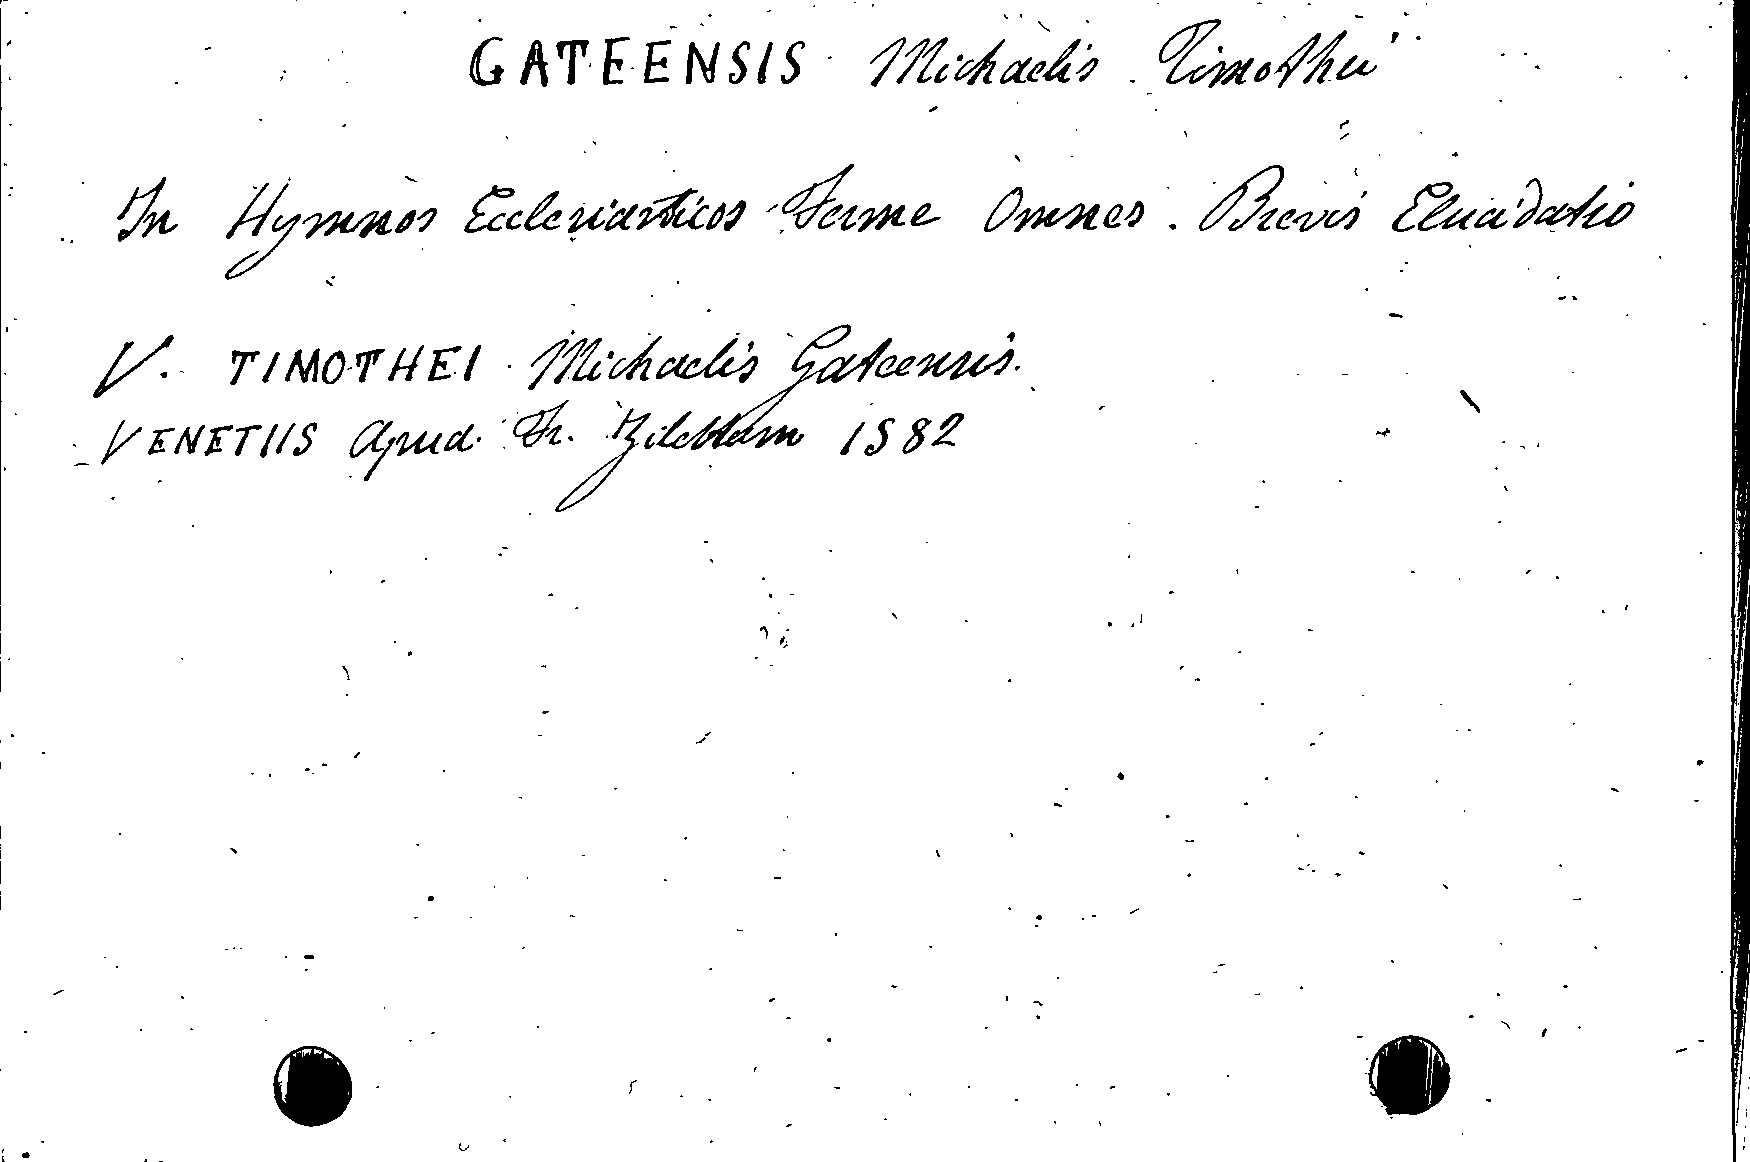 GATEENSIS Michaelis Timothei
In Hymnos Ecclesiasticos Ferme Omnes. Brevis Elucidatio
V. TIMOTHEI Michaelis Gateensis.
VENETIIS Apud. Fr. Zilettum 1582